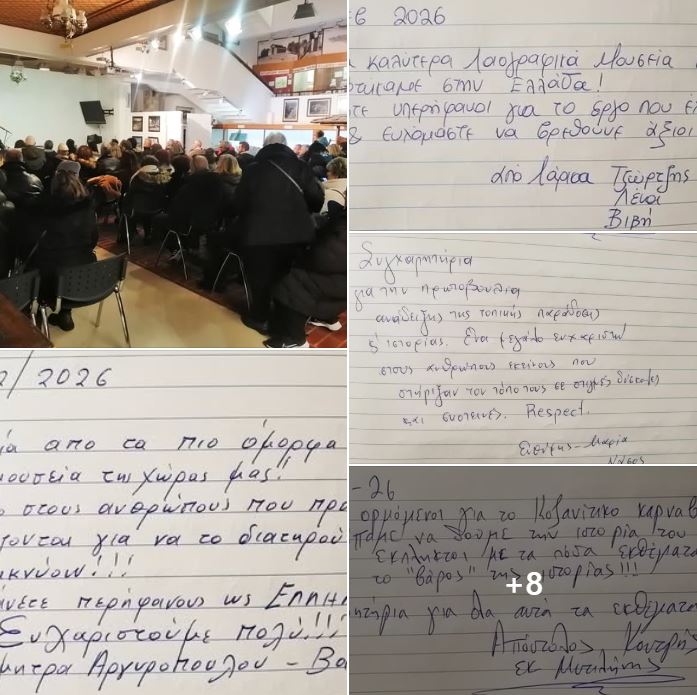 2026
καλύτερα Λαογραφικά Μουσεία
στην Ελλάδα!
υπερήφανοι για το έργο που
& ευχόμαστε να βρεθούνε άξιοι
από Λάρισα Τζώρτζης
Λένα
Βιβή
Συγχαρητήρια
για την πρωτοβουλία
ανάδειξης της τοπικής παράδοσης
& ιστορίας. Ένα μεγάλο ευχαριστώ
στους ανθρώπους εκείνους που
στήριξαν τον τόπο τους σε στιγμές δύσκολες
και
Respect.
Μαρία
/ 2026
από τα πιο όμορφα
μουσεία της χώρας μας!!
στους ανθρώπους που
για να το
περήφανους ως
Ευχαριστούμε πολύ!!!
Αργυροπούλου -
-26
για το Κοζανίτικο
να δούμε την ιστορία του
με τα πόσα εκθέματα
το "βάρος" της ιστορίας!!!
+8
για όλα αυτά τα εκθέματα
Απόστολος
εκ Μυτιλήνης